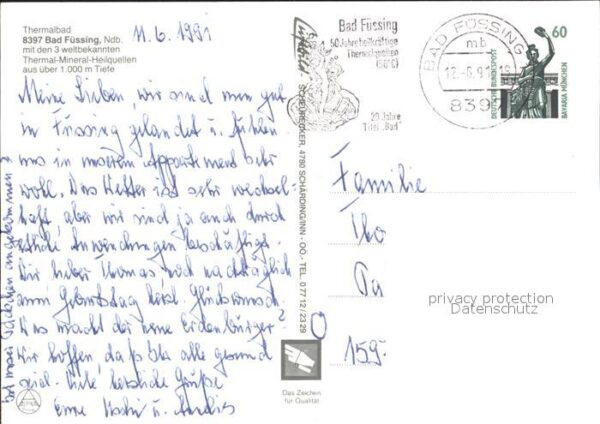 Thermalbad
8397 Bad Füssing, Ndb.
mit den 3 weltbekannten
Thermal-Mineral-Heilquellen
aus über 1.000 m Tiefe
11.6.1991
Meine Lieben, wir sind nun gut
in Füssing gelandet u. fühlen
uns in unserem Appartement sehr
wohl. Das Wetter ist sehr wechsel-
haft, aber wir sind ja auch durch
etliche Anwendungen beschäftigt.
Dir lieber Thomas, noch nachträglich
zum Geburtstag herzl. Glückwunsch.
Was macht der neue Erdenbürger?
Wir hoffen, daß Ihr alle gesund
seid. Viele herzliche Grüße
Eure u.
Päckchen angekommen?
SCHEURECKER, 4780 SCHÄRDING/INN - OÖ. - TEL. 0 77 12 / 23 29
Das Zeichen
für Qualität
Bad Füssing
50 Jahre heilkräftige
Thermalquellen
(56°C)
20 Jahre
Titel „Bad"
BAD FÜSSING
mb
12.-6.91
8397
60
DEUTSCHE BUNDESPOST
BAVARIA MÜNCHEN
Familie
Tho
Pa
159-
privacy protection
Datenschutz